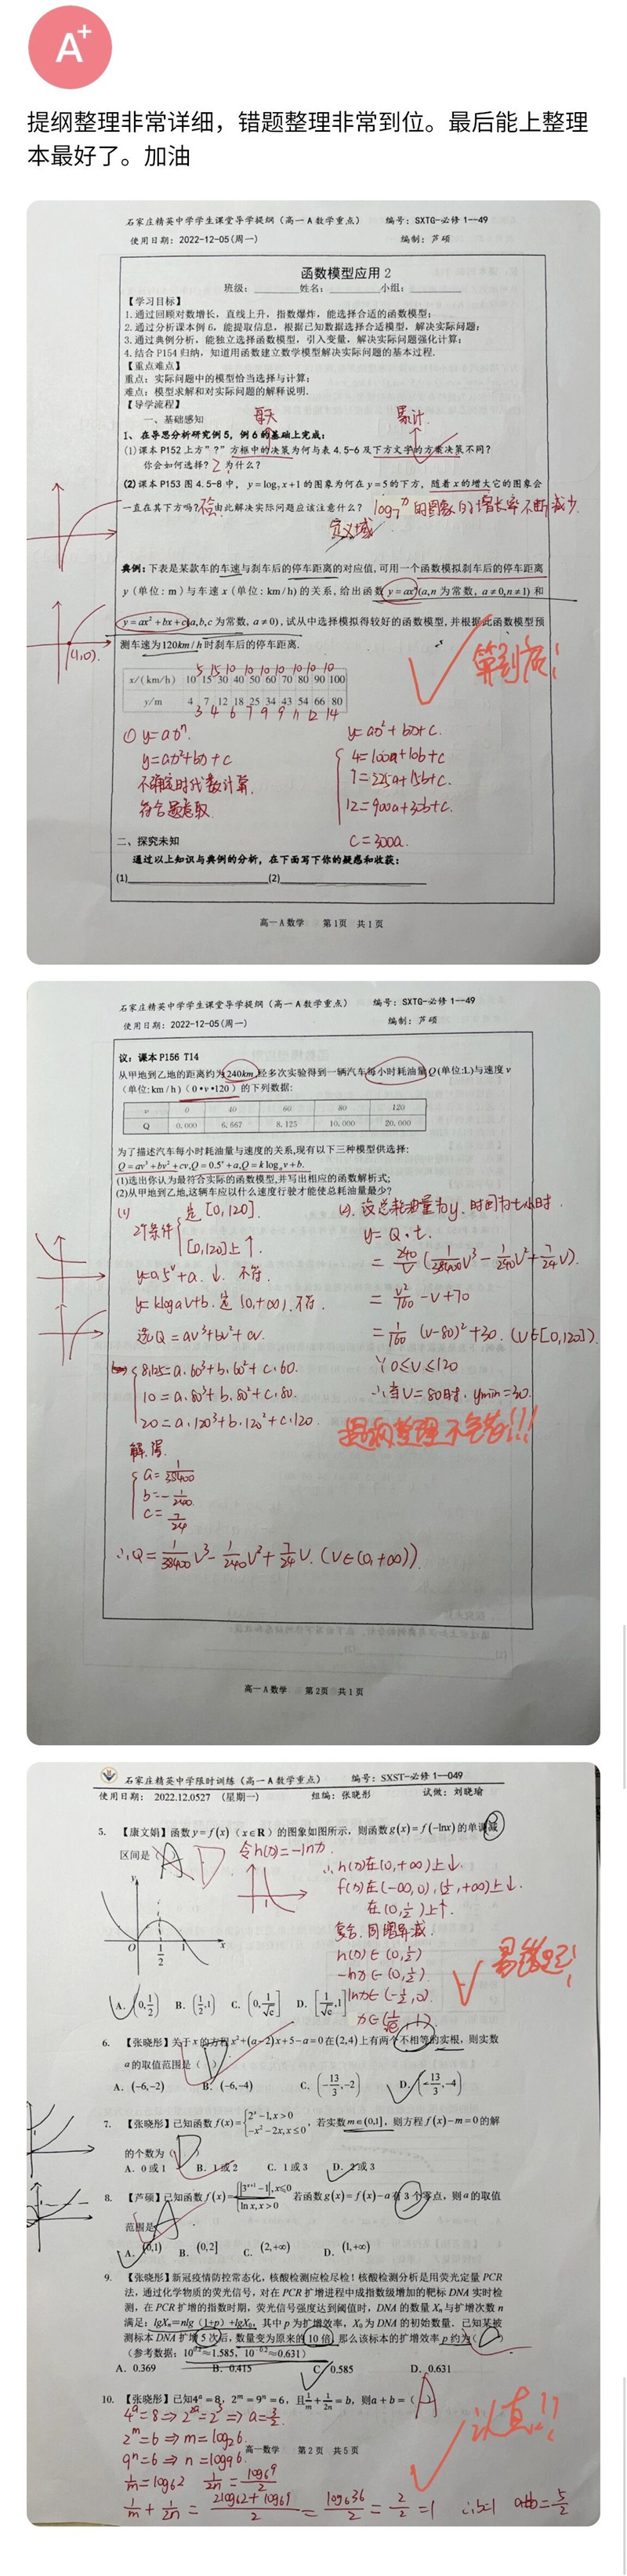 A+
提纲整理非常详细，错题整理非常到位。最后能上整理
本最好了。加油
石家庄精英中学学生课堂导学提纲（高一A数学重点） 编号：SXTG-必修1--49
使用日期：2022-12-05(周一) 编制：芦硕
函数模型应用2
班级：______ 姓名：______ 小组：______
【学习目标】
1.通过回顾对数增长，直线上升，指数爆炸，能选择合适的函数模型；
2.通过分析课本例6，能提取信息，根据已知数据选择合适模型，解决实际问题；
3.通过典例分析，能独立选择函数模型，引入变量，解决实际问题强化计算；
4.结合P154归纳，知道用函数建立数学模型解决实际问题的基本过程.
【重点难点】
重点：实际问题中的模型恰当选择与计算；
难点：模型求解和对实际问题的解释说明.
【导学流程】
一、基础感知
每天 累计
1、在导思分析研究例5，例6的基础上完成：
(1)课本P152上方"？"方框中的决策为何与表4.5-6及下方文字的方案决策不同?
你会如何选择？为什么？
(2)课本P153图4.5-8中，y=log₇x+1的图象为何在y=5的下方，随着x的增大它的图象会
一直在其下方吗?不会由此解决实际问题应该注意什么? log₇ˣ的图象的增长率不断减少.
定义域
典例：下表是某款车的车速与刹车后的停车距离的对应值,可用一个函数模拟刹车后的停车距离
y（单位：m）与车速x（单位：km/h）的关系，给出函数y=axⁿ(a,n为常数，a≠0,n≠1)和
y=ax²+bx+c(a,b,c为常数，a≠0),试从中选择模拟得较好的函数模型,并根据此函数模型预
(1,0).
测车速为120km/h时刹车后的停车距离.
算到底!
5 15 10 10 10 10 10 10 10
x/(km/h) 10 15 30 40 50 60 70 80 90 100
y/m 4 7 12 18 25 34 43 54 66 80
3 4 6 7 9 9 11 12 14
① y=axⁿ. y=ax²+bx+c.
y=ax²+bx+c 4=100a+10b+c
不确定时代数计算, 7=225a+15b+c.
符合题意取. 12=900a+30b+c.
二、探究未知 c=300a.
通过以上知识与典例的分析，在下面写下你的疑惑和收获：
(1)______(2)______
高一A数学 第1页 共1页
石家庄精英中学学生课堂导学提纲（高一A数学重点） 编号：SXTG-必修1--49
使用日期：2022-12-05(周一) 编制：芦硕
议：课本P156 T14
从甲地到乙地的距离约为240km,经多次实验得到一辆汽车每小时耗油量Q(单位:L)与速度v
（单位:km/h）（0•v•120）的下列数据:
v 0 40 60 80 120
Q 0.000 6.667 8.125 10.000 20.000
为了描述汽车每小时耗油量与速度的关系,现有以下三种模型供选择:
Q=av³+bv²+cv,Q=0.5ᵛ+a,Q=klogₐv+b.
(1)选出你认为最符合实际的函数模型,并写出相应的函数解析式;
(2)从甲地到乙地,这辆车应以什么速度行驶才能使总耗油量最少?
(1) 2个条件 定[0,120]. (2). 设总耗油量为y. 时间为t小时.
[0,120]上↑. y=Q·t.
y=0.5ᵛ+a. ↓. 不符. =240/v(1/38400v³-1/240v²+7/24v).
y=klogₐv+b. 定(0,+∞).不符. =v²/160-v+70
选Q=av³+bv²+cv. =1/160(v-80)²+30. (v∈[0,120]).
8.125=a·60³+b·60²+c·60. ∵0≤v≤120
10=a·80³+b·80²+c·80. ∴当v=80时, ymin=30.
20=a·120³+b·120²+c·120. 提纲整理不错!!!
解得
a=1/38400
b=-1/240.
c=7/24
∴Q=1/38400v³-1/240v²+7/24v. (v∈(0,+∞)).
高一A数学 第2页 共1页
石家庄精英中学限时训练（高一A数学重点） 编号：SXST-必修1--049
使用日期： 2022.12.0527 (星期一) 组编：张晓彤 试做：刘晓瑜
5. 【康文娟】函数y=f(x)（x∈R）的图象如图所示，则函数g(x)=f(-lnx)的单调减
区间是（ ）A D 令h(x)=-lnx.
∴h(x)在(0,+∞)上↓.
f(x)在(-∞,0),(½,+∞)上↓.
在(0,½)上↑.
复合. 同增异减.
h(x)∈(0,½)
-lnx∈(0,½).
lnx∈(-½,0).
x∈(1/√e,1).
易错题!
y O 1/2 1 x
A. (0,1/2) B. (1/2,1) C. (0,1/√e] D. [1/√e,1]
6. 【张晓彤】关于x的方程x²+(a-2)x+5-a=0在(2,4)上有两个不相等的实根，则实数
a的取值范围是（ ）
A. (-6,-2) B. (-6,-4) C. (-13/3,-2) D. (-13/3,-4)
7. 【张晓彤】已知函数f(x)={2ˣ-1,x>0 -x²-2x,x≤0，若实数m∈(0,1]，则方程f(x)-m=0的解
的个数为（D）
A. 0或1 B. 1或2 C. 1或3 D. 2或3
8. 【芦硕】已知函数f(x)={|3ˣ⁺¹-1|,x≤0 lnx,x>0 若函数g(x)=f(x)-a有3个零点，则a的取值
范围是 A
A. (0,1) B. (0,2] C. (2,+∞) D. (1,+∞)
9. 【张晓彤】新冠疫情防控常态化，核酸检测应检尽检！核酸检测分析是用荧光定量PCR
法，通过化学物质的荧光信号，对在PCR扩增进程中成指数级增加的靶标DNA实时检
测，在PCR扩增的指数时期，荧光信号强度达到阈值时，DNA的数量Xₙ与扩增次数n
满足：lgXₙ=nlg（1+p）+lgX₀，其中p为扩增效率，X₀为DNA的初始数量．已知某被
测标本DNA扩增5次后，数量变为原来的10倍，那么该标本的扩增效率p约为（ ）
（参考数据：10⁰·²≈1.585，10⁻⁰·²≈0.631）
A．0.369 B．0.415 C．0.585 D．0.631
10. 【张晓彤】已知4ᵃ=8，2ᵐ=9ⁿ=6，且1/m+1/2n=b，则a+b=（A
4ᵃ=8⇒2²ᵃ=2³⇒a=3/2.
认真!!
2ᵐ=6⇒m=log₂6.
9ⁿ=6⇒n=log₉6. 高一数学 第2页 共5页
1/m=log₆2 1/2n=log₆9/2
1/m+1/2n=2log₆2+log₆9/2=log₆36/2=2/2=1 ∴b=1 a+b=5/2